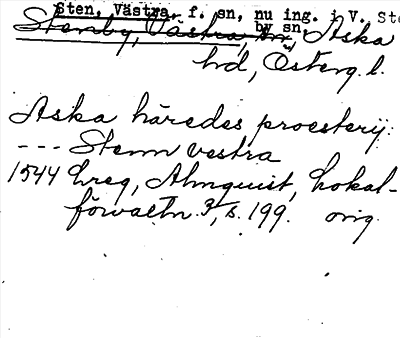 Sten, Västra, f. sn, nu ing. i V. Ste
by sn,
Stenby, Västra, sn, Aska
hd, Österg. l.
Aska häredes proesterij:
--- Stenn vestra
1544 hreg, Almquist, Lokal-
förvaltn. 3, s. 199. orig.